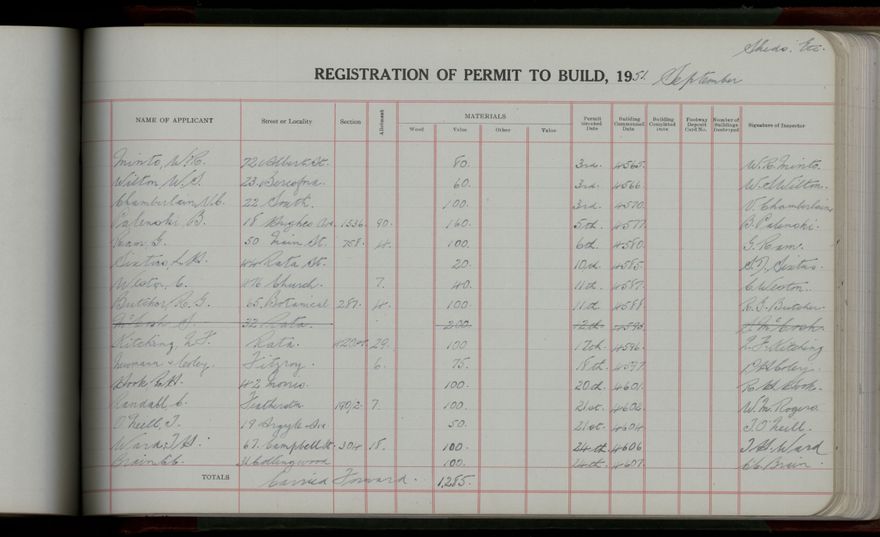 Sheds. Etc.
REGISTRATION OF PERMIT TO BUILD, 1951. September
NAME OF APPLICANT Street or Locality Section Allotment MATERIALS Permit Granted Date Building Commenced Date Building Completed Date Footway Deposit Card No. Number of Buildings Destroyed Signature of Inspector
Wood Value Other Value
Minto, W.R. 72 Albert St. 80. 3rd. 4565. W.R. Minto.
Wilton W.S. 23. 60. 3rd. 4566. W.S. Wilton.
Chamberlain, V.C. 22 South. 100. 3rd. 4570. V. Chamberlain
Palenski B. 18 Hughes Ave. 1536. 90. 160. 5th. 4577. B. Palenski.
Ram G. 50 Main St. 758. 4. 100. 6th. 4580. G. Ram.
Sixtus, L.B. 44 Rata St. 20. 10th. 4585. Sixtus.
Weston, C. 476 Church. 7. 40. 11th. 4587. C Weston.
Butcher, R.G. 65. Botanical 287. 4. 100. 11th. 4588 R.G. Butcher.
McCosh 32 Rata. 200. 12th. McCosh.
Kitching, L.F. Rata. 29. 100 17th. 4596. L.F. Kitching
Newmann & Coley. Fitzroy. 6. 75. 18th. 4597. Coley.
Hook, R.H. 42 Morris. 100. 20th. 4601. R.H. Hook.
Randall C. Featherston 7. 100. 21st. 4602. W.M. Rogers.
O'Neill, T. 19 Argyle Ave 50. 21st. 4604 T. O'Neill.
Ward, T.H. 67. Campbell St. 304 18. 100. 24th. 4606 T.H. Ward
Brain C.C. 31 Collingwood 100. 24th. 4607. C.C. Brain.
TOTALS Carried Forward. 1,285.